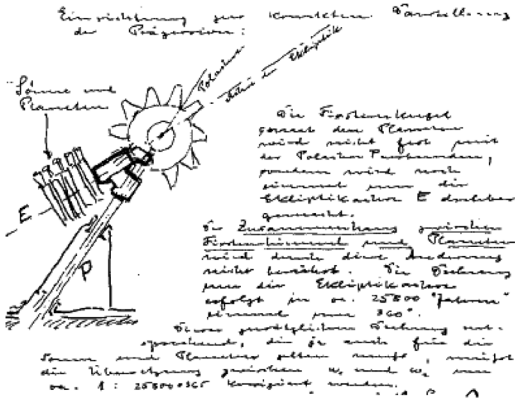 Einrichtung zur korrekten Darstellung
der Präzession:
Polachse
Achse der Ekliptik
Sonne und
Planeten
E
P
Die Fixsternkugel
samt den Planeten
wird nicht fest mit
der Polachse verbunden,
sondern wird noch
einmal um die
Ekliptikachse E drehbar
gemacht.
Der Zusammenhang zwischen
Fixsternhimmel und Planeten
wird durch diese Änderung
nicht berührt. Die Drehung
um die Ekliptikachse
erfolgt in ca. 25800 "Jahren"
einmal um 360°.
Dieser zusätzlichen Drehung
die ja auch für die
Sonne und Planeten gelten muß, muß
die Übersetzung zwischen und um
ca. 1 : korrigiert werden.